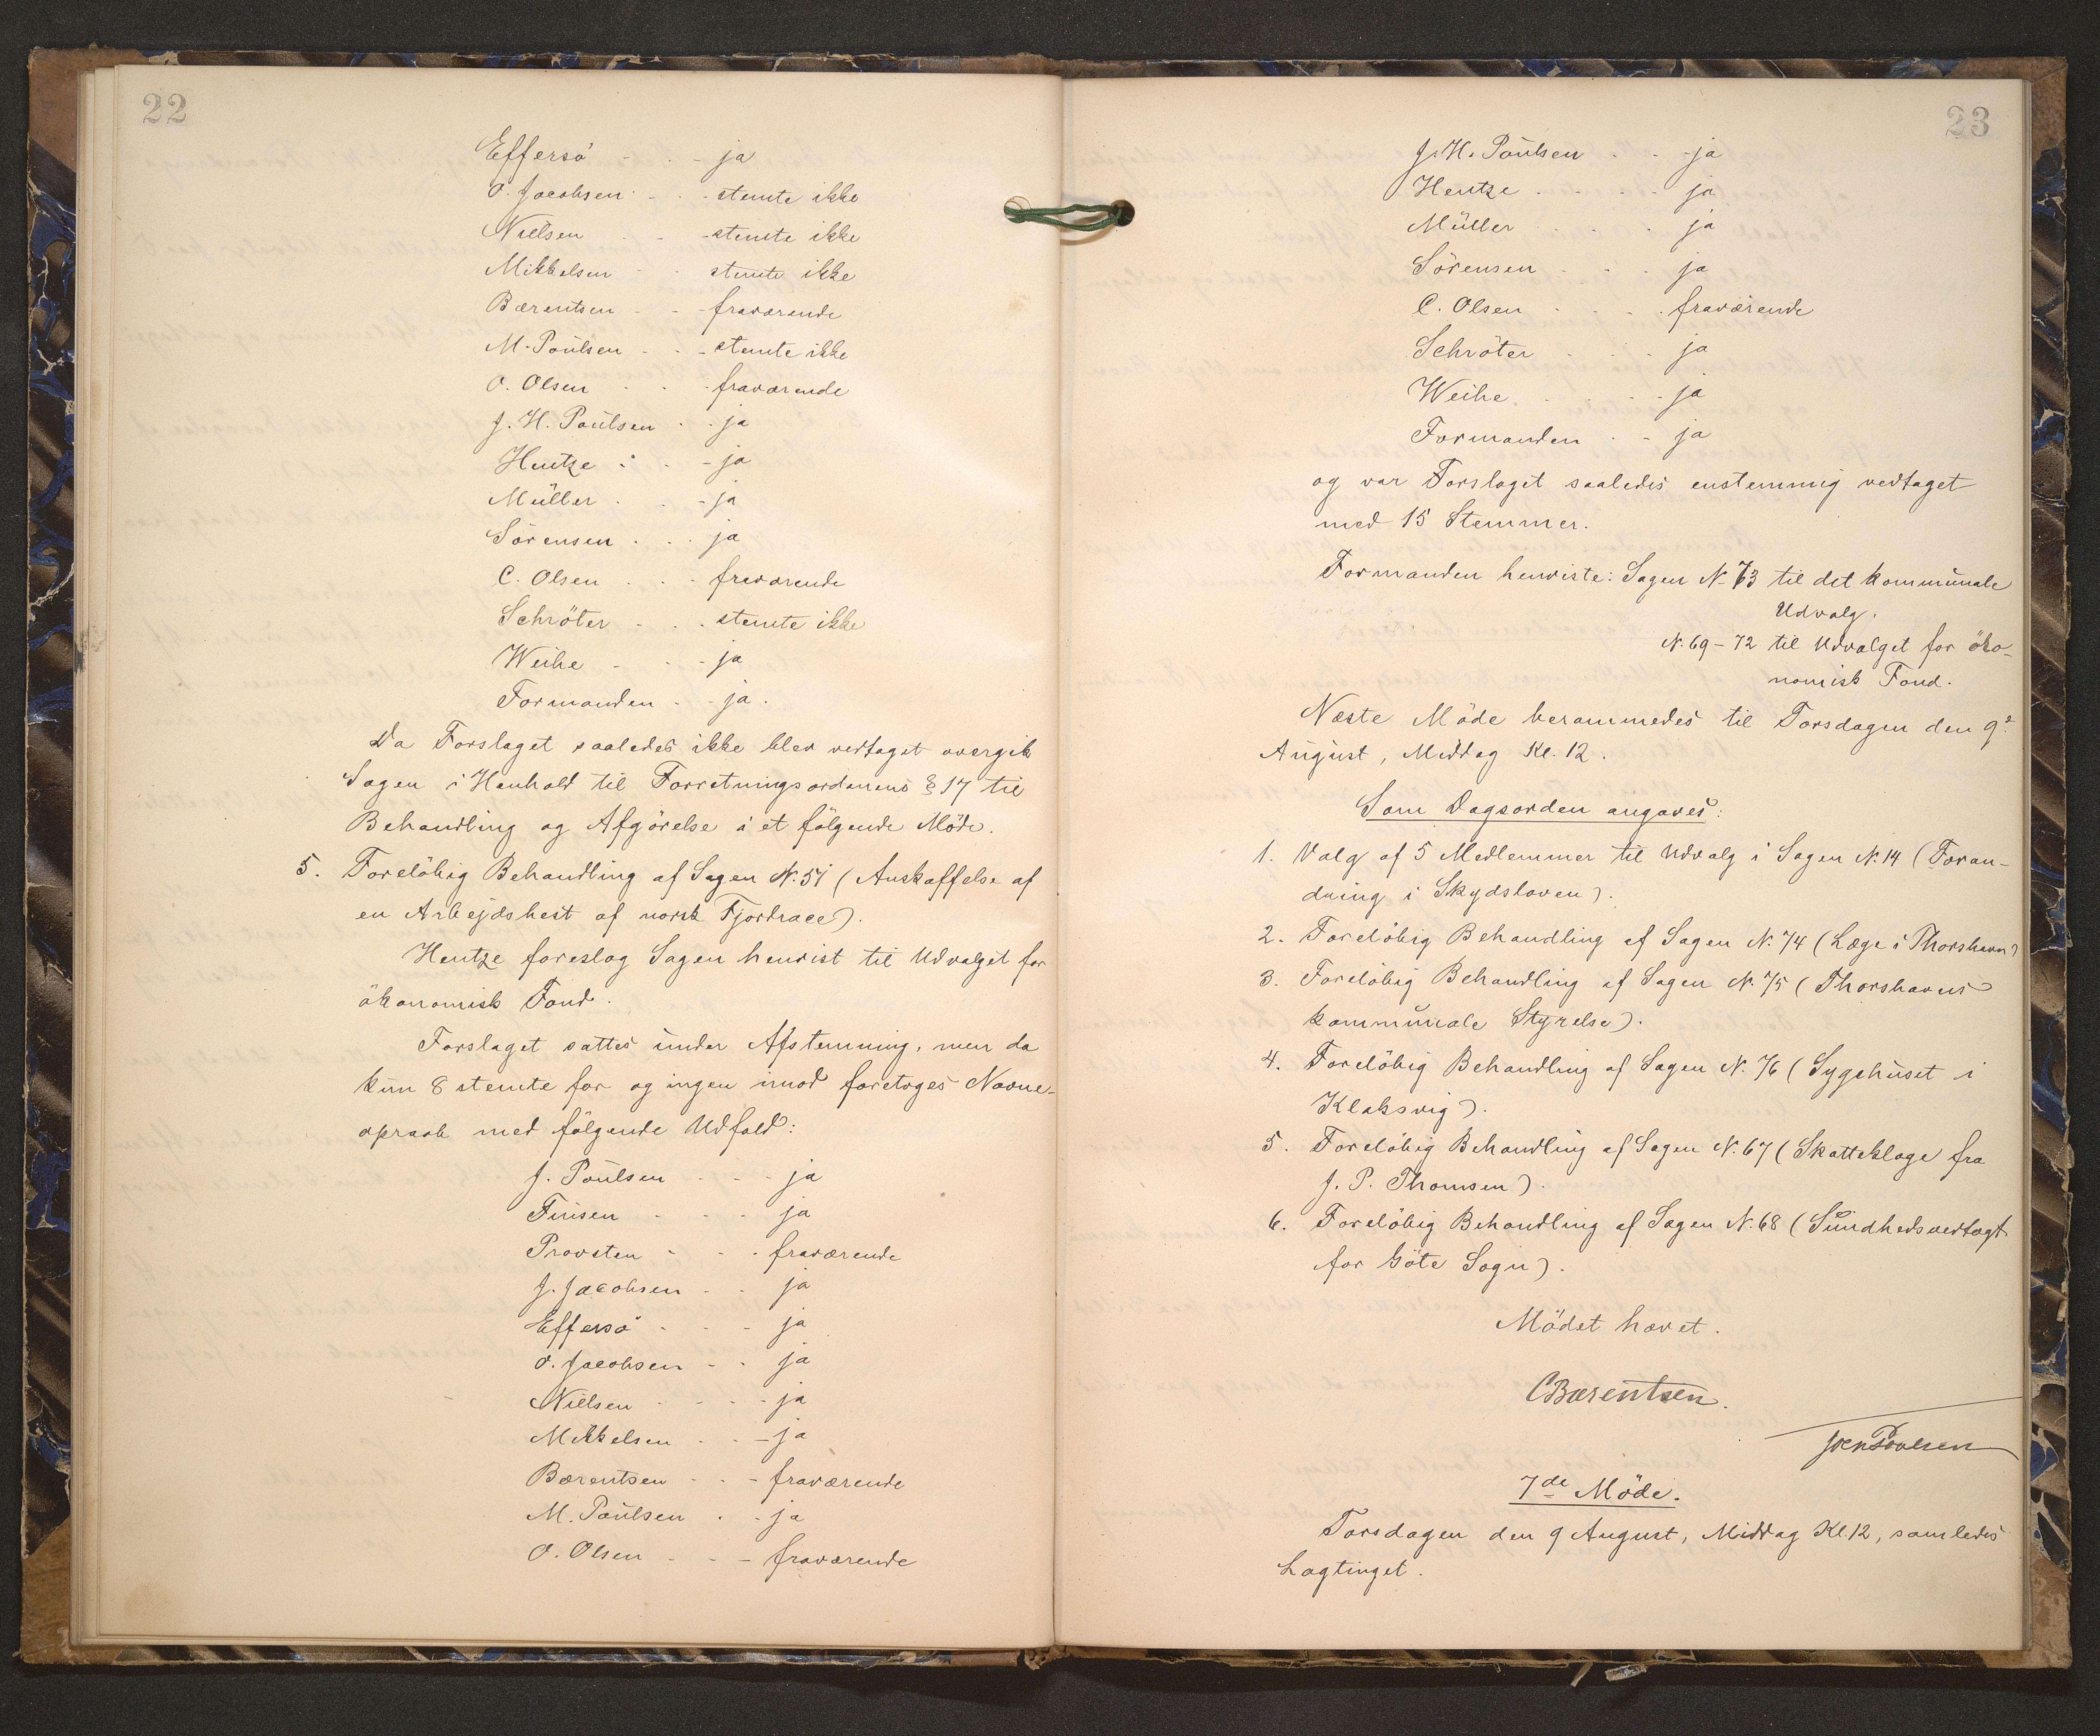 22
Effersö - - ja
O. Jacobsen - - stemte ikke
Nielsen - - stemte ikke
Mikkelsen - - stemte ikke
Bærentsen - - fraværende
M. Poulsen - - stemte ikke
O. Olsen - - fraværende
J. H. Poulsen - - ja
Hentze - - ja
Müller - - ja
Sörensen - - ja
C. Olsen - - fraværende
Schröter - - stemte ikke
Weihe - - ja
Formanden - - ja.
Da Forslaget saaledes ikke blev vedtaget overgik
Sagen i Henhold til Forretningsordenens § 17 til
Behandling og Afgörelse i et fölgende Möde.
5. Forelöbig Behandling af Sagen N. 51 (Anskaffelse af
en Arbejdshest af norsk Fjordrace).
Hentze foreslog Sagen henvist til Udvalget for
ökonomisk Fond.
Forslaget sattes under Afstemning, men da
kun 8 stemte for og ingen imod foretoges Navne-
opraab med fölgende Udfald:
J. Poulsen - - - ja
Finsen - - - ja
Provsten - - - fraværende
J. Jacobsen - - ja
Effersö - - - ja
O. Jacobsen - - ja
Nielsen - - - ja
Mikkelsen - - ja
Bærentsen - - - fraværende
M. Poulsen - - ja
O. Olsen - - - fraværende
23
J. H. Poulsen - - ja
Hentze - - - ja
Müller - - - ja
Sörensen - - - ja
C. Olsen - - - fraværende
Schröter - - - ja
Weihe - - - ja
Formanden - - ja
og var Forslaget saaledes enstemmig vedtaget
med 15 Stemmer.
Formanden henviste: Sagen N. 73 til det kommunale
Udvalg.
N. 69-72 til Udvalget for öko-
nomisk Fond.
Næste Möde berammedes til Torsdagen den 9de
August, Middag Kl. 12.
Som Dagsorden angaves:
1. Valg af 5 Medlemmer til Udvalg i Sagen N. 14 (Foran-
dring i Skydsloven).
2. Forelöbig Behandling af Sagen N. 74 (Læge i Thorshavn)
3. Forelöbig Behandling af Sagen N. 75 (Thorshavns
kommunale Styrelse).
4. Forelöbig Behandling af Sagen N. 76 (Sygehuset i
Klaksvig).
5. Forelöbig Behandling af Sagen N. 67 (Skatteklage fra
J. P. Thomsen).
6. Forelöbig Behandling af Sagen N. 68 (Sundhedsvedtægt
for Göte Sogn).
Mödet hævet.
CBærentsen.
Poulsen
7de Möde.
Torsdagen den 9 August, Middag Kl. 12, samledes
Lagtinget.